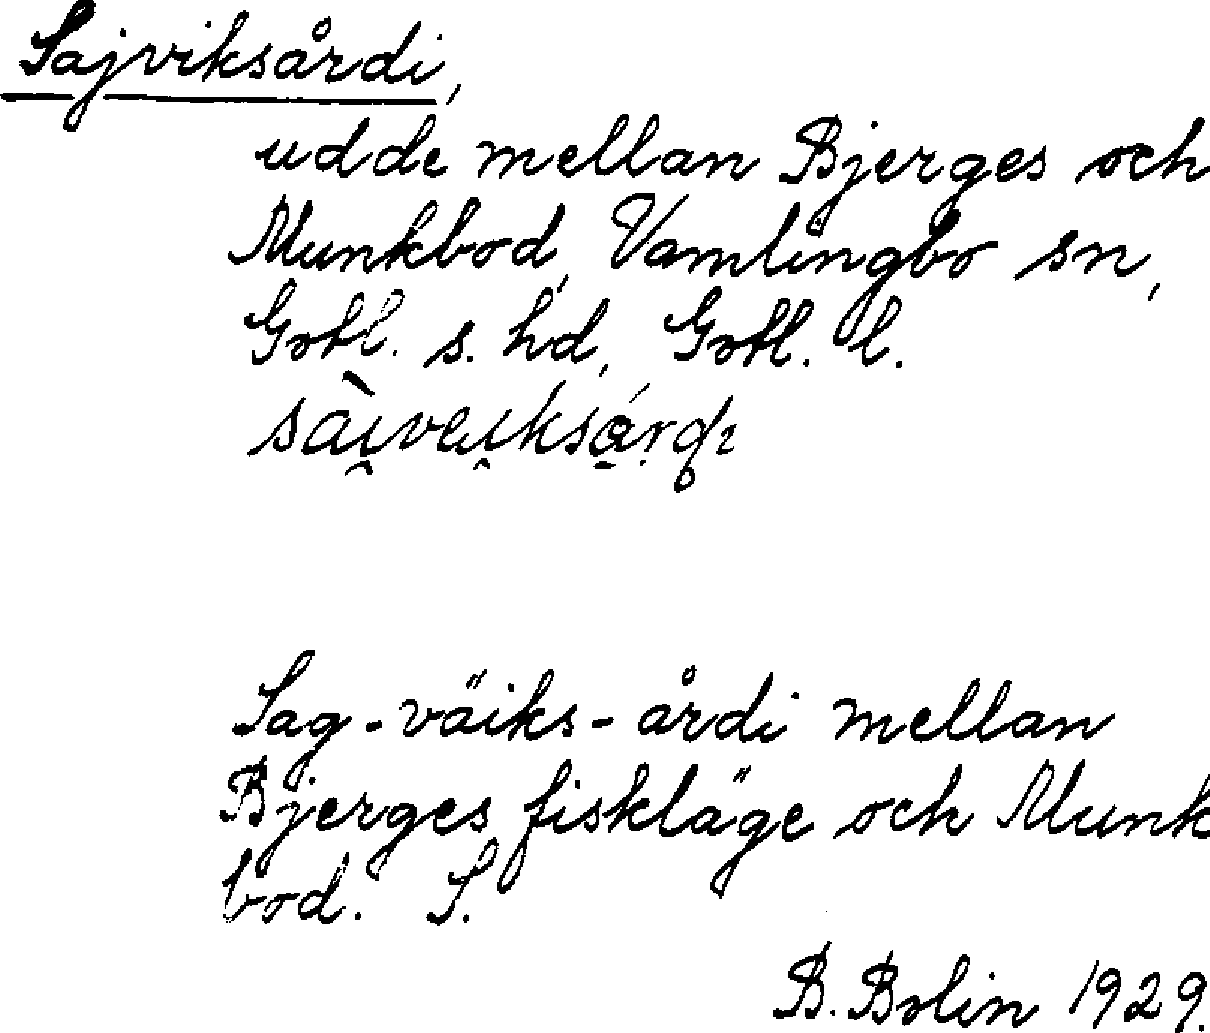 Sajviksårdi,
udde mellan Bjerges och
Munkbod, Vamlingbo sn,
Gotl. s. hd, Gotl. l.
Sag-väiks-årdi mellan
Bjerges fiskläge och Munk
bod. S.
B. Bolin 1929.